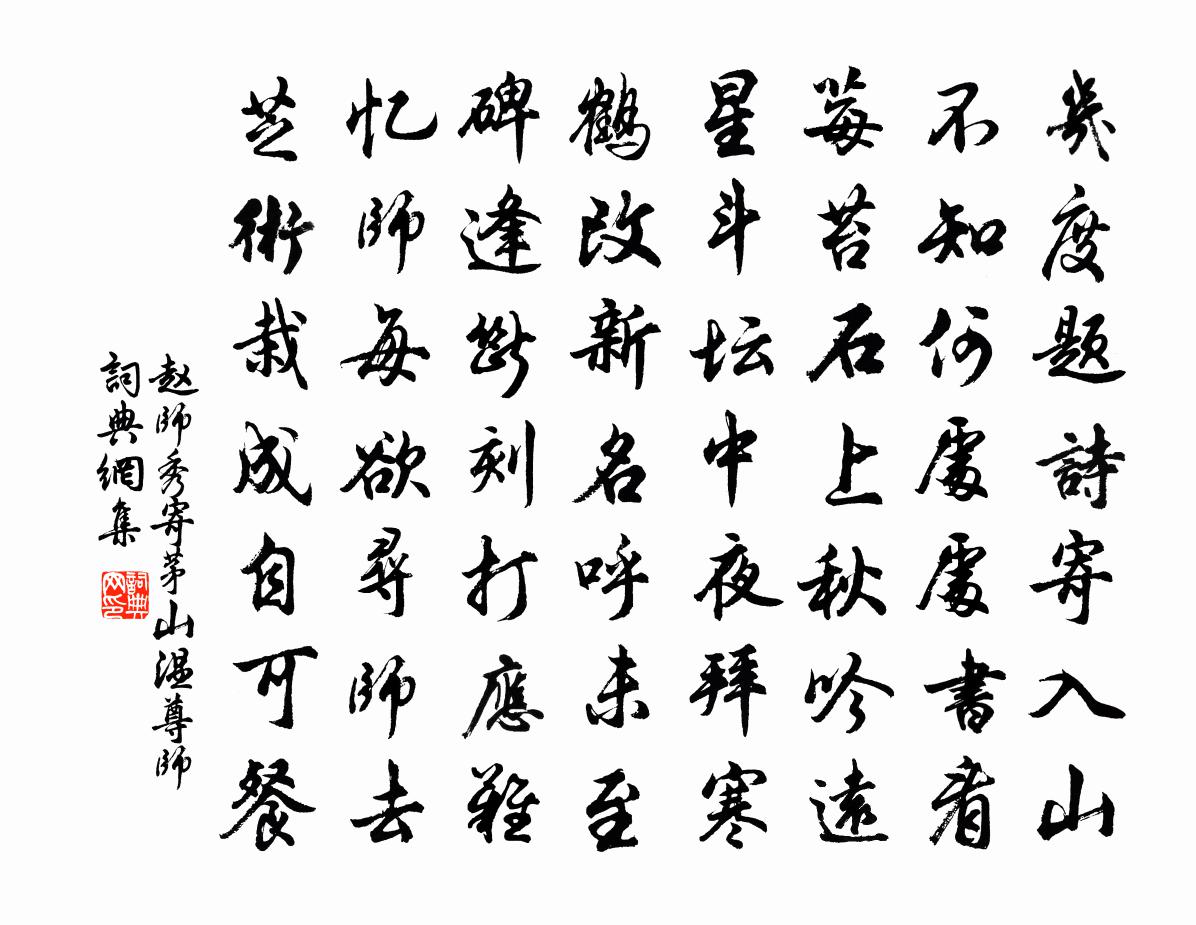 幾度題詩寄入山
不知何處處書看
莓苔石上秋吟遠
星斗坛中夜拜寒
鶴改新名呼未至
碑逢斷刻打應難
忆師每欲尋師去
芝術栽成自可餐
赵師秀寄茅山温尊師
詞典網集
詞典网印